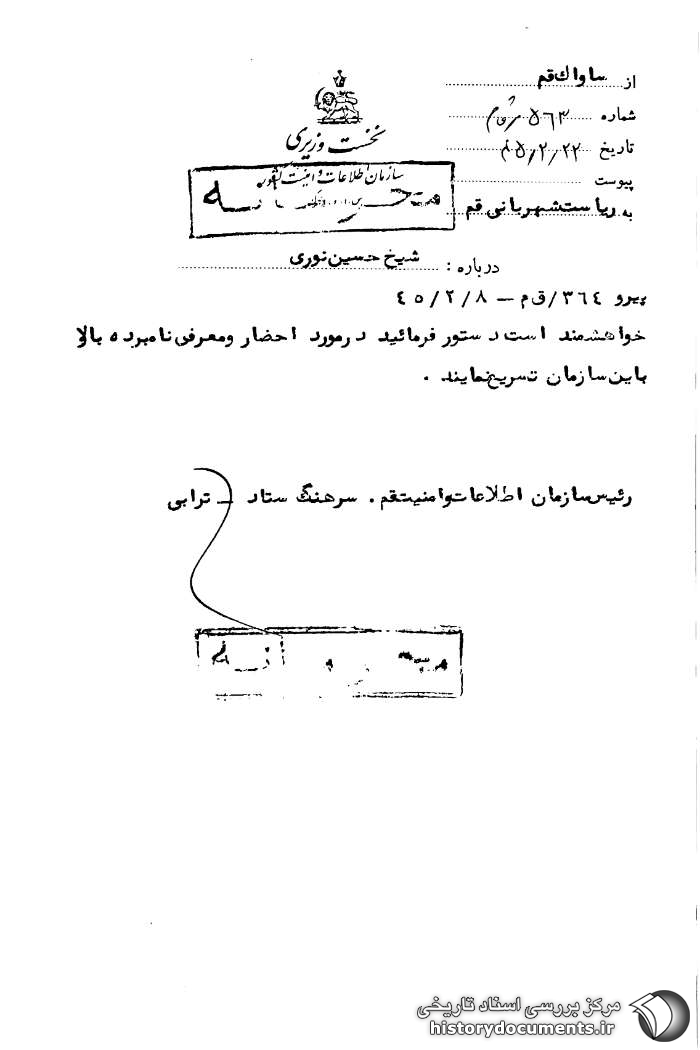 از ساواك قم
شماره ۵۶۳ / ق م
تاریخ ۴۵/۲/۲۲
پیوست
به ریاست شهربانی قم
نخست وزیری
سازمان اطلاعات و امنیت کشور
محرمانه
درباره : شیخ حسین نوری
پیرو ٣٦٤/ ق م – ٤٥/٢/٨
خواهشمند است دستور فرمائید درمورد احضار ومعرفی نامبرده بالا
باین سازمان تسریع نمایند .
رئیس سازمان اطلاعات وامنیت قم . سرهنگ ستاد – ترابی
مرکز بررسی اسناد تاریخی
historydocuments.ir